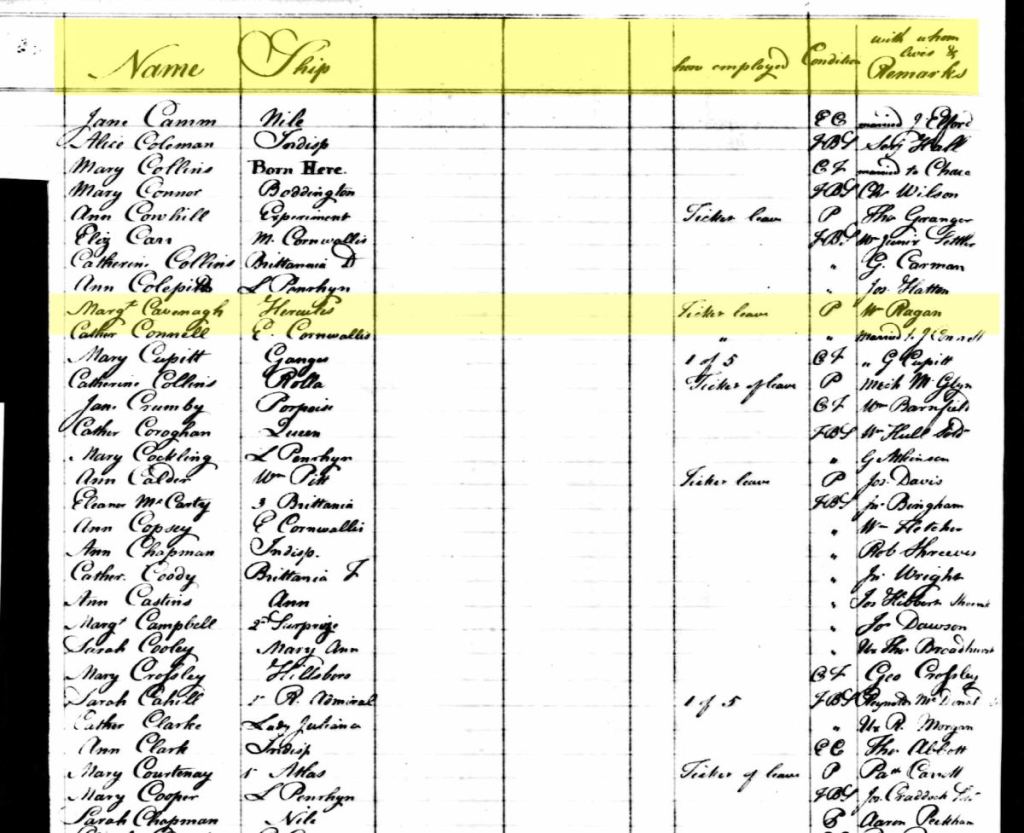 Name Ship how employed Condition with whom lives & Remarks
Jane Camm Nile E C married J Elford
Alice Coleman Indisp FBS Serj Hall
Mary Collins Born Here. C F married to Chace
Mary Connor Boddington FBS Chs Wilson
Ann Cowhill Experiment Ticket leave P Thos Granger
Eliz Carr M. Cornwallis FBS Wm Junir Settler
Catherine Collins Brittannia D " G. Carman
Ann L Penrhyn " Jos Hatton
Margt Cavenagh Hercules Ticket leave P Wm Ragan
Cather Connell E. Cornwallis " " married to J Connell
Mary Cupitt Ganges 1 of 5 C F " G Cupitt
Catherine Collins Rolla Ticket of leave P Mich
Jane Crumby Porpoise C F Wm Barnfield
Cather Coroghan Queen FBS Wm Hull Sold
Mary Cockling L Penrhyn " G Atkinson
Ann Calder Wm Pitt Ticket leave P Jos. Davis
Eleanor McCarty 3 Brittania FBS Jno Bingham
Ann Copsey E Cornwallis " Wm Fletcher
Ann Chapman Indisp. " Rob Shreeves
Cather. Coody Brittania F " Jno Wright
Ann Castins Ann " Jos Hibbert
Margt Campbell 2d Surprize " Jos Dawson
Sarah Cooley Mary Ann " Thos Broadhurst
Mary Crossley Hillsboro C F Geo Crossley
Sarah Cahill 1t R. Admiral 1 of 5 FBS
Cather Clarke Lady Juliana " R. Morgan
Ann Clark Indisp E C Thos Abbott
Mary Courtenay 1t Atlas Ticket of leave P Patk
Mary Cooper L Penrhyn FBS Jos Craddock
Sarah Chapman Nile E Aaron Peckham